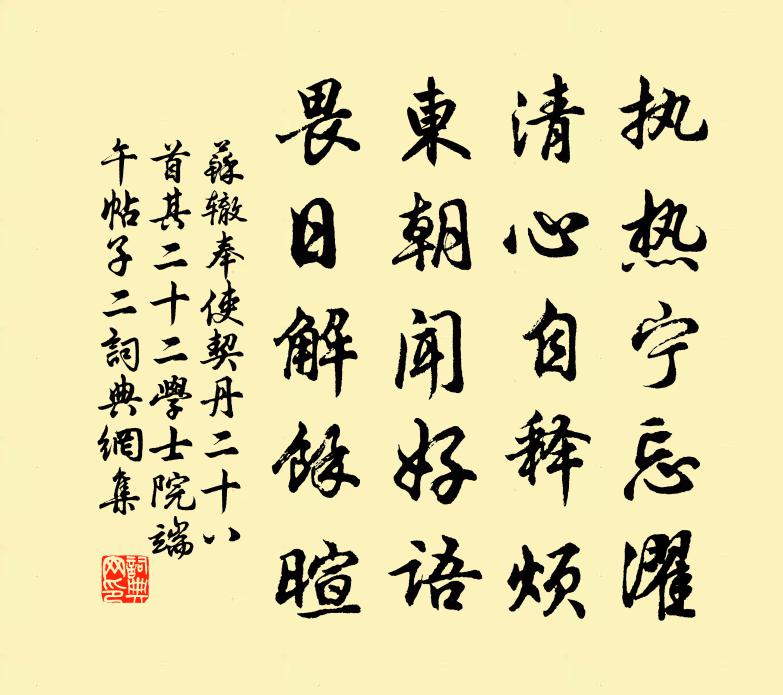 执热宁忘濯
清心自释烦
東朝闻好语
畏日解餘暄
蘇辙奉使契丹二十八
首其二十二學士院端
午帖子二詞典網集
詞典
网印